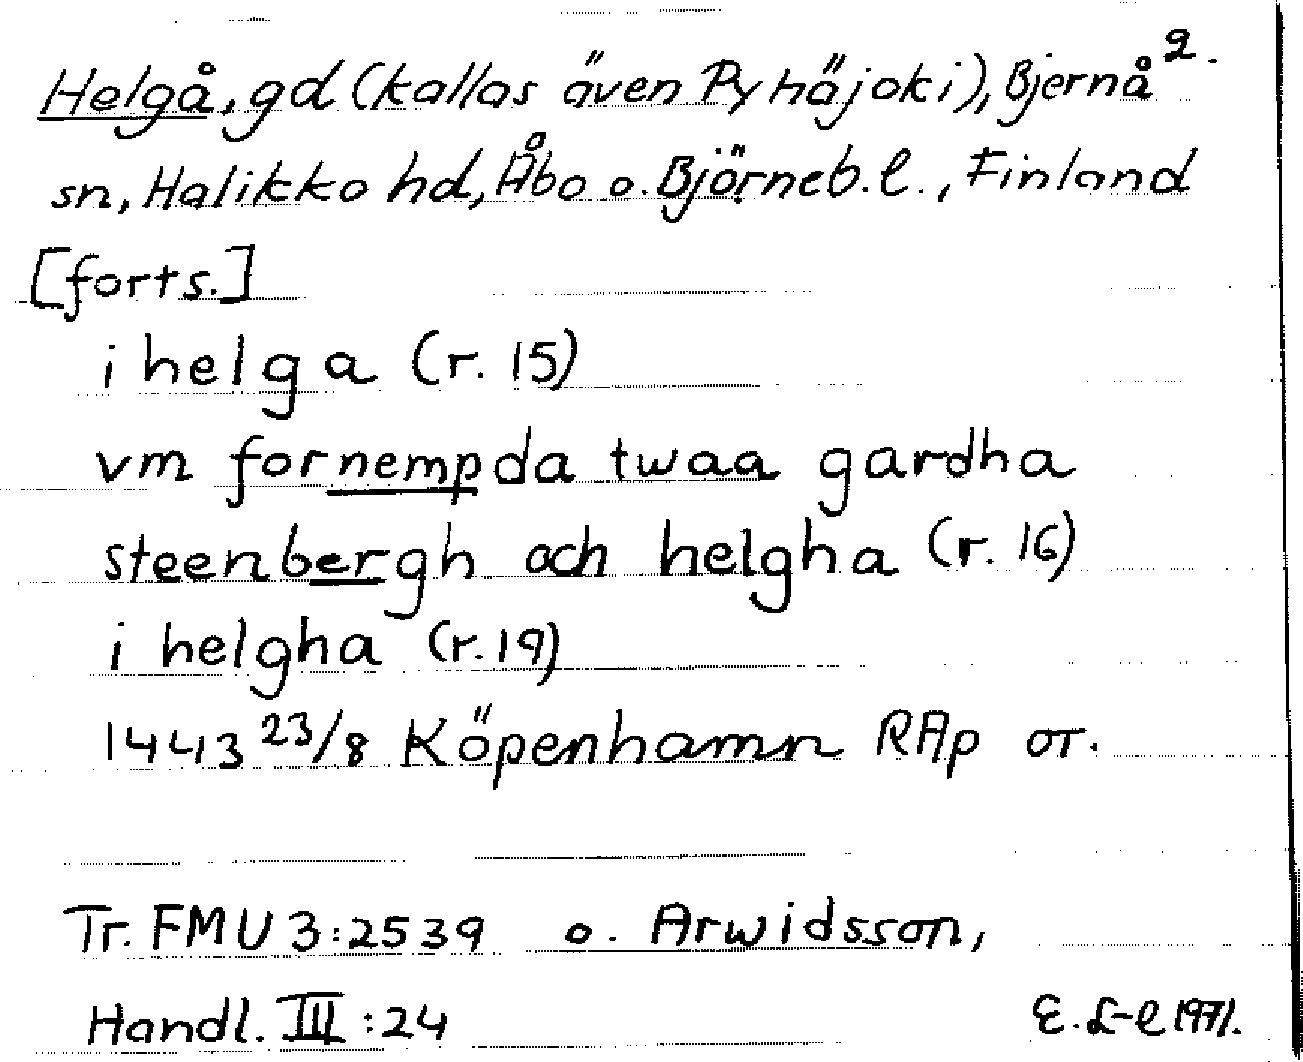 Helgå, gd (kallas även Pyhäjoki), Bjernå 2.
sn, Halikko hd, Åbo o. Björneb. l., Finland
[forts.]
i helga (r. 15)
vm fornempda twaa gardha
steenbergh och helgha (r. 16)
i helgha (r. 19)
1443 23/8 Köpenhamn RAp or.
Tr. FMU 3:2539 o. Arwidsson,
Handl. III :24 E. L-l 1971.